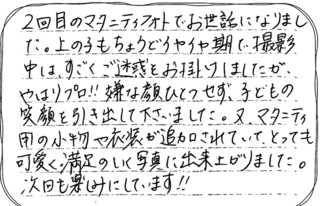 2回目のマタニティフォトでお世話になりまし
た。上の子もちょうどイヤイヤ期で、撮影
中は、すごくご迷惑をお掛けしましたが、
やはりプロ!!嫌な顔ひとつせず、子どもの
笑顔を引き出して下さいました。又、マタニティ
用の小物や衣装が追加されていて、とっても
可愛く満足のいく写真に出来上がりました。
次回も楽しみにしています!!